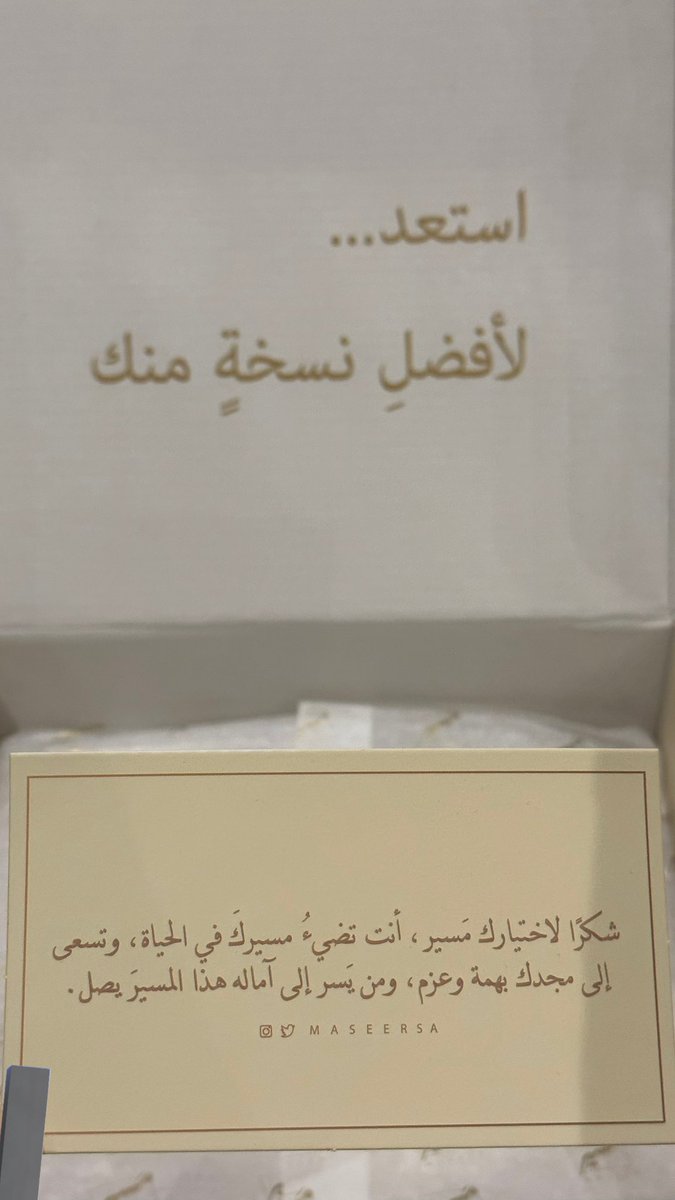 استعد...
لأفضلِ نسخةٍ منك
شكرًا لاختيارك مَسير، أنت تضيءُ مسيركَ في الحياة، وتسعى
إلى مجدك بهمة وعزم، ومن يَسر إلى آماله هذا المسيرَ يصل.
MASEERSA